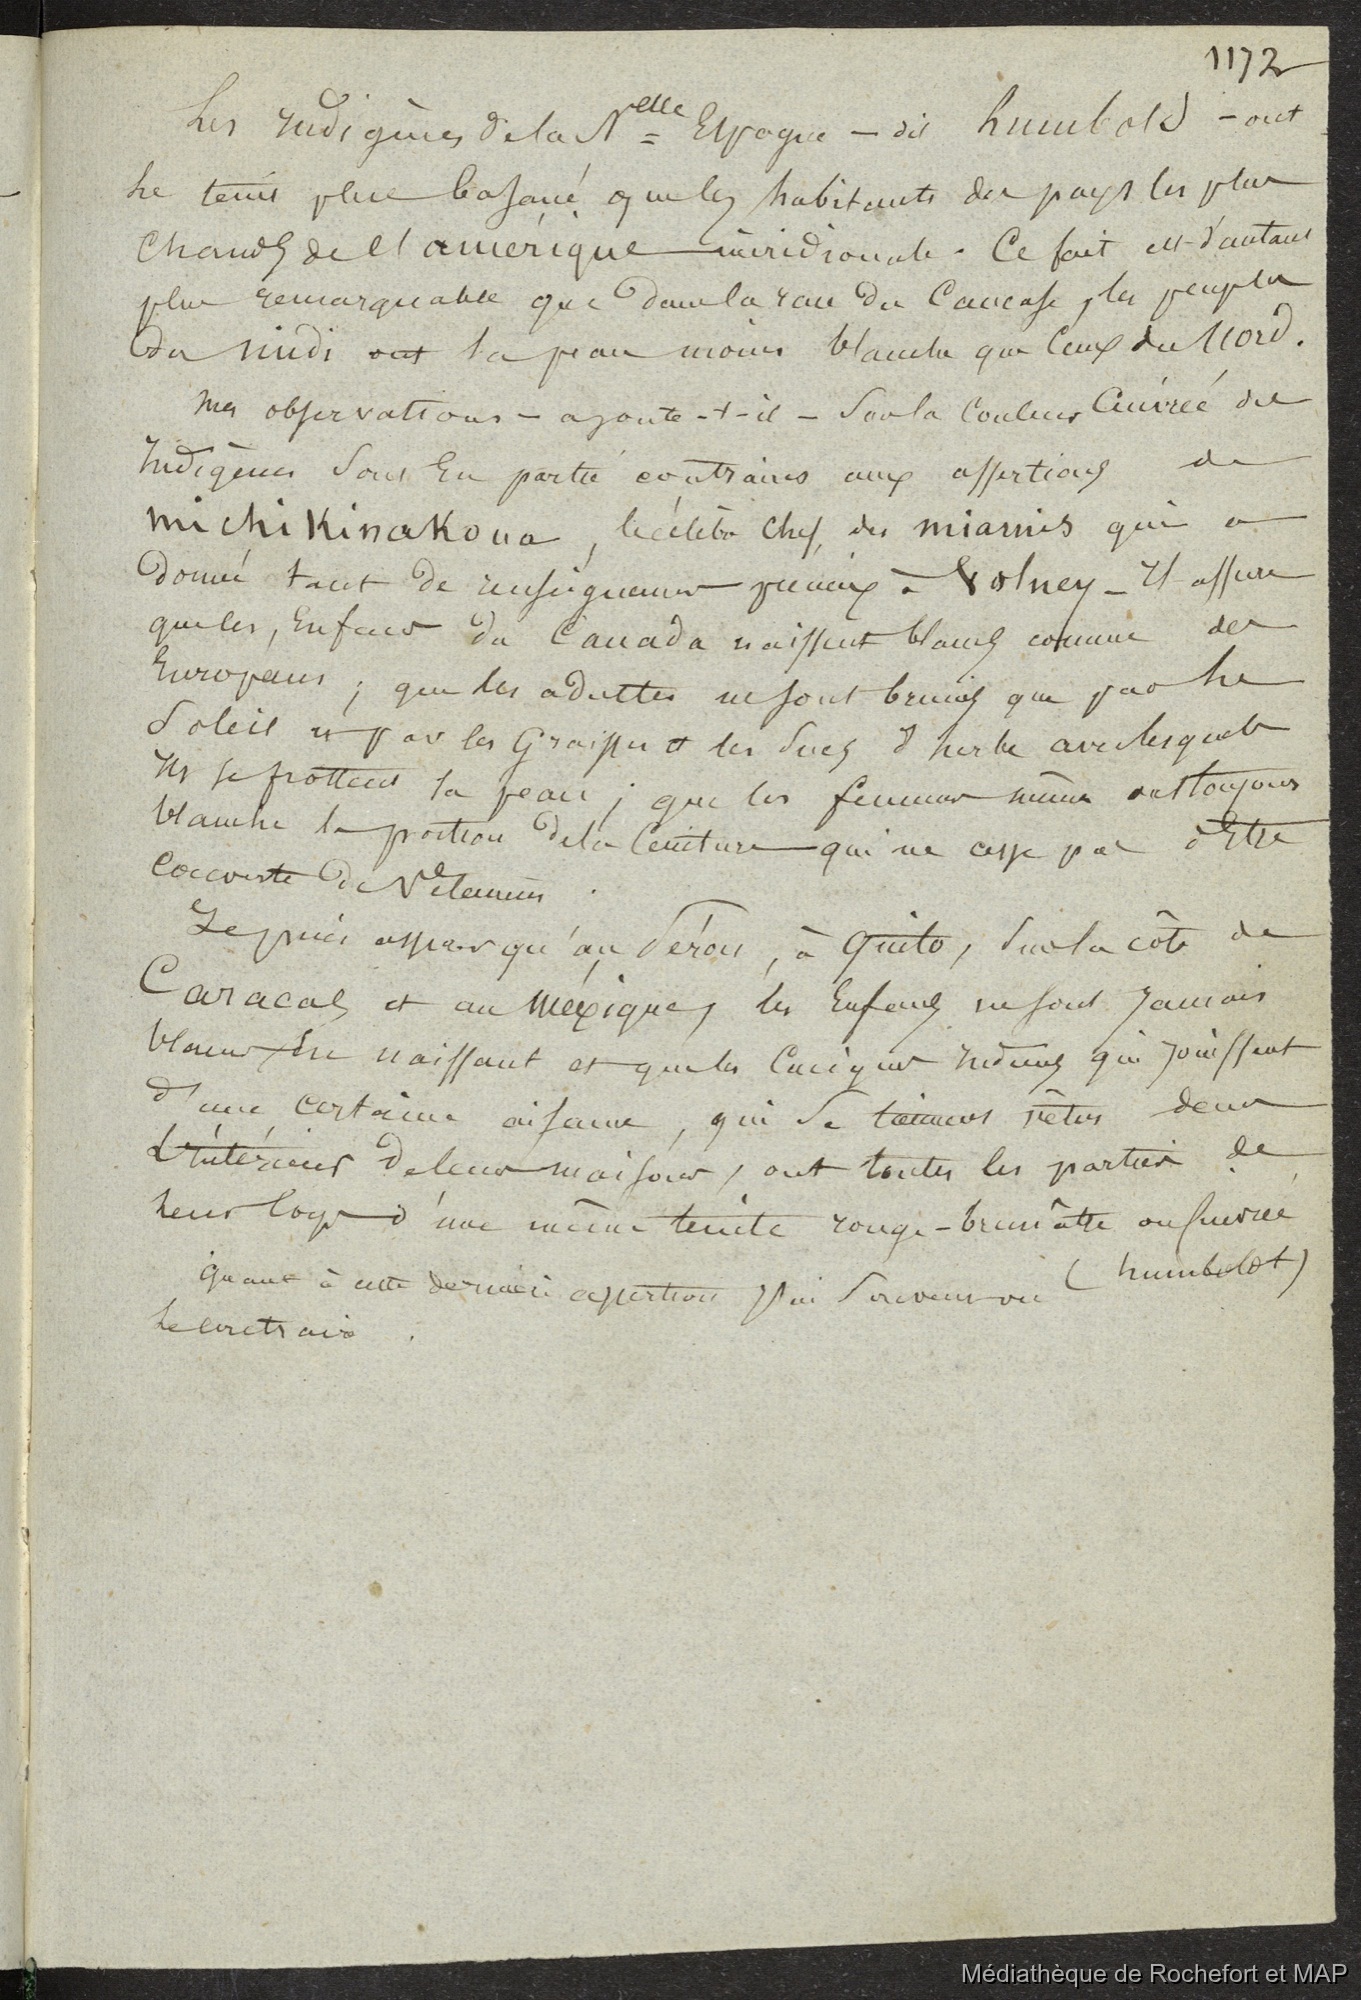 1172
Les indigènes de la Nelle = Espagne – dit humbold – ont
le teint plus basané que les habitants des pays les plus
chauds de l'amérique méridionale. Ce fait est d'autant
plus remarquable que dans la race du Caucase, les peuples
du midi ont la peau moins blanche que ceux du Nord.
mes observations – ajoute-t-il – Sur la Couleur Cuivrée des
Indigènes Sont En partie contraires aux assertions de
michikinakoua, le célèbre chef des miamis qui a
donné tant de renseignemens précieux à Volney – Il assure
que les Enfans du Canada naissent blancs comme des
Européens ; que les adultes ne sont brunis que par le
Soleil et par les Graisses et les Sucs d'herbe avec lesquels
Ils se frottent la peau ; que les femmes même ont toujours
blanche la portion de la Ceinture qui ne cesse pas d'Etre
couverte de Vêtemens.
Je puis assurer qu'au Pérou, à Quito, Sur la côte de
Caracas et au Méxique, les Enfans ne sont jamais
blancs En naissant et que les Caciques Indiens qui jouissent
d'une certaine aisance, qui Se tiennent vêtus dans
L'intérieur de leurs maisons, ont toutes les parties de
leur corps d'une même teinte rouge-brunâtre ou cuivrée
(humboldt)
Quant à cette dernière assertion j'ai Souvent vu
le contraire.
Médiathèque de Rochefort et MAP